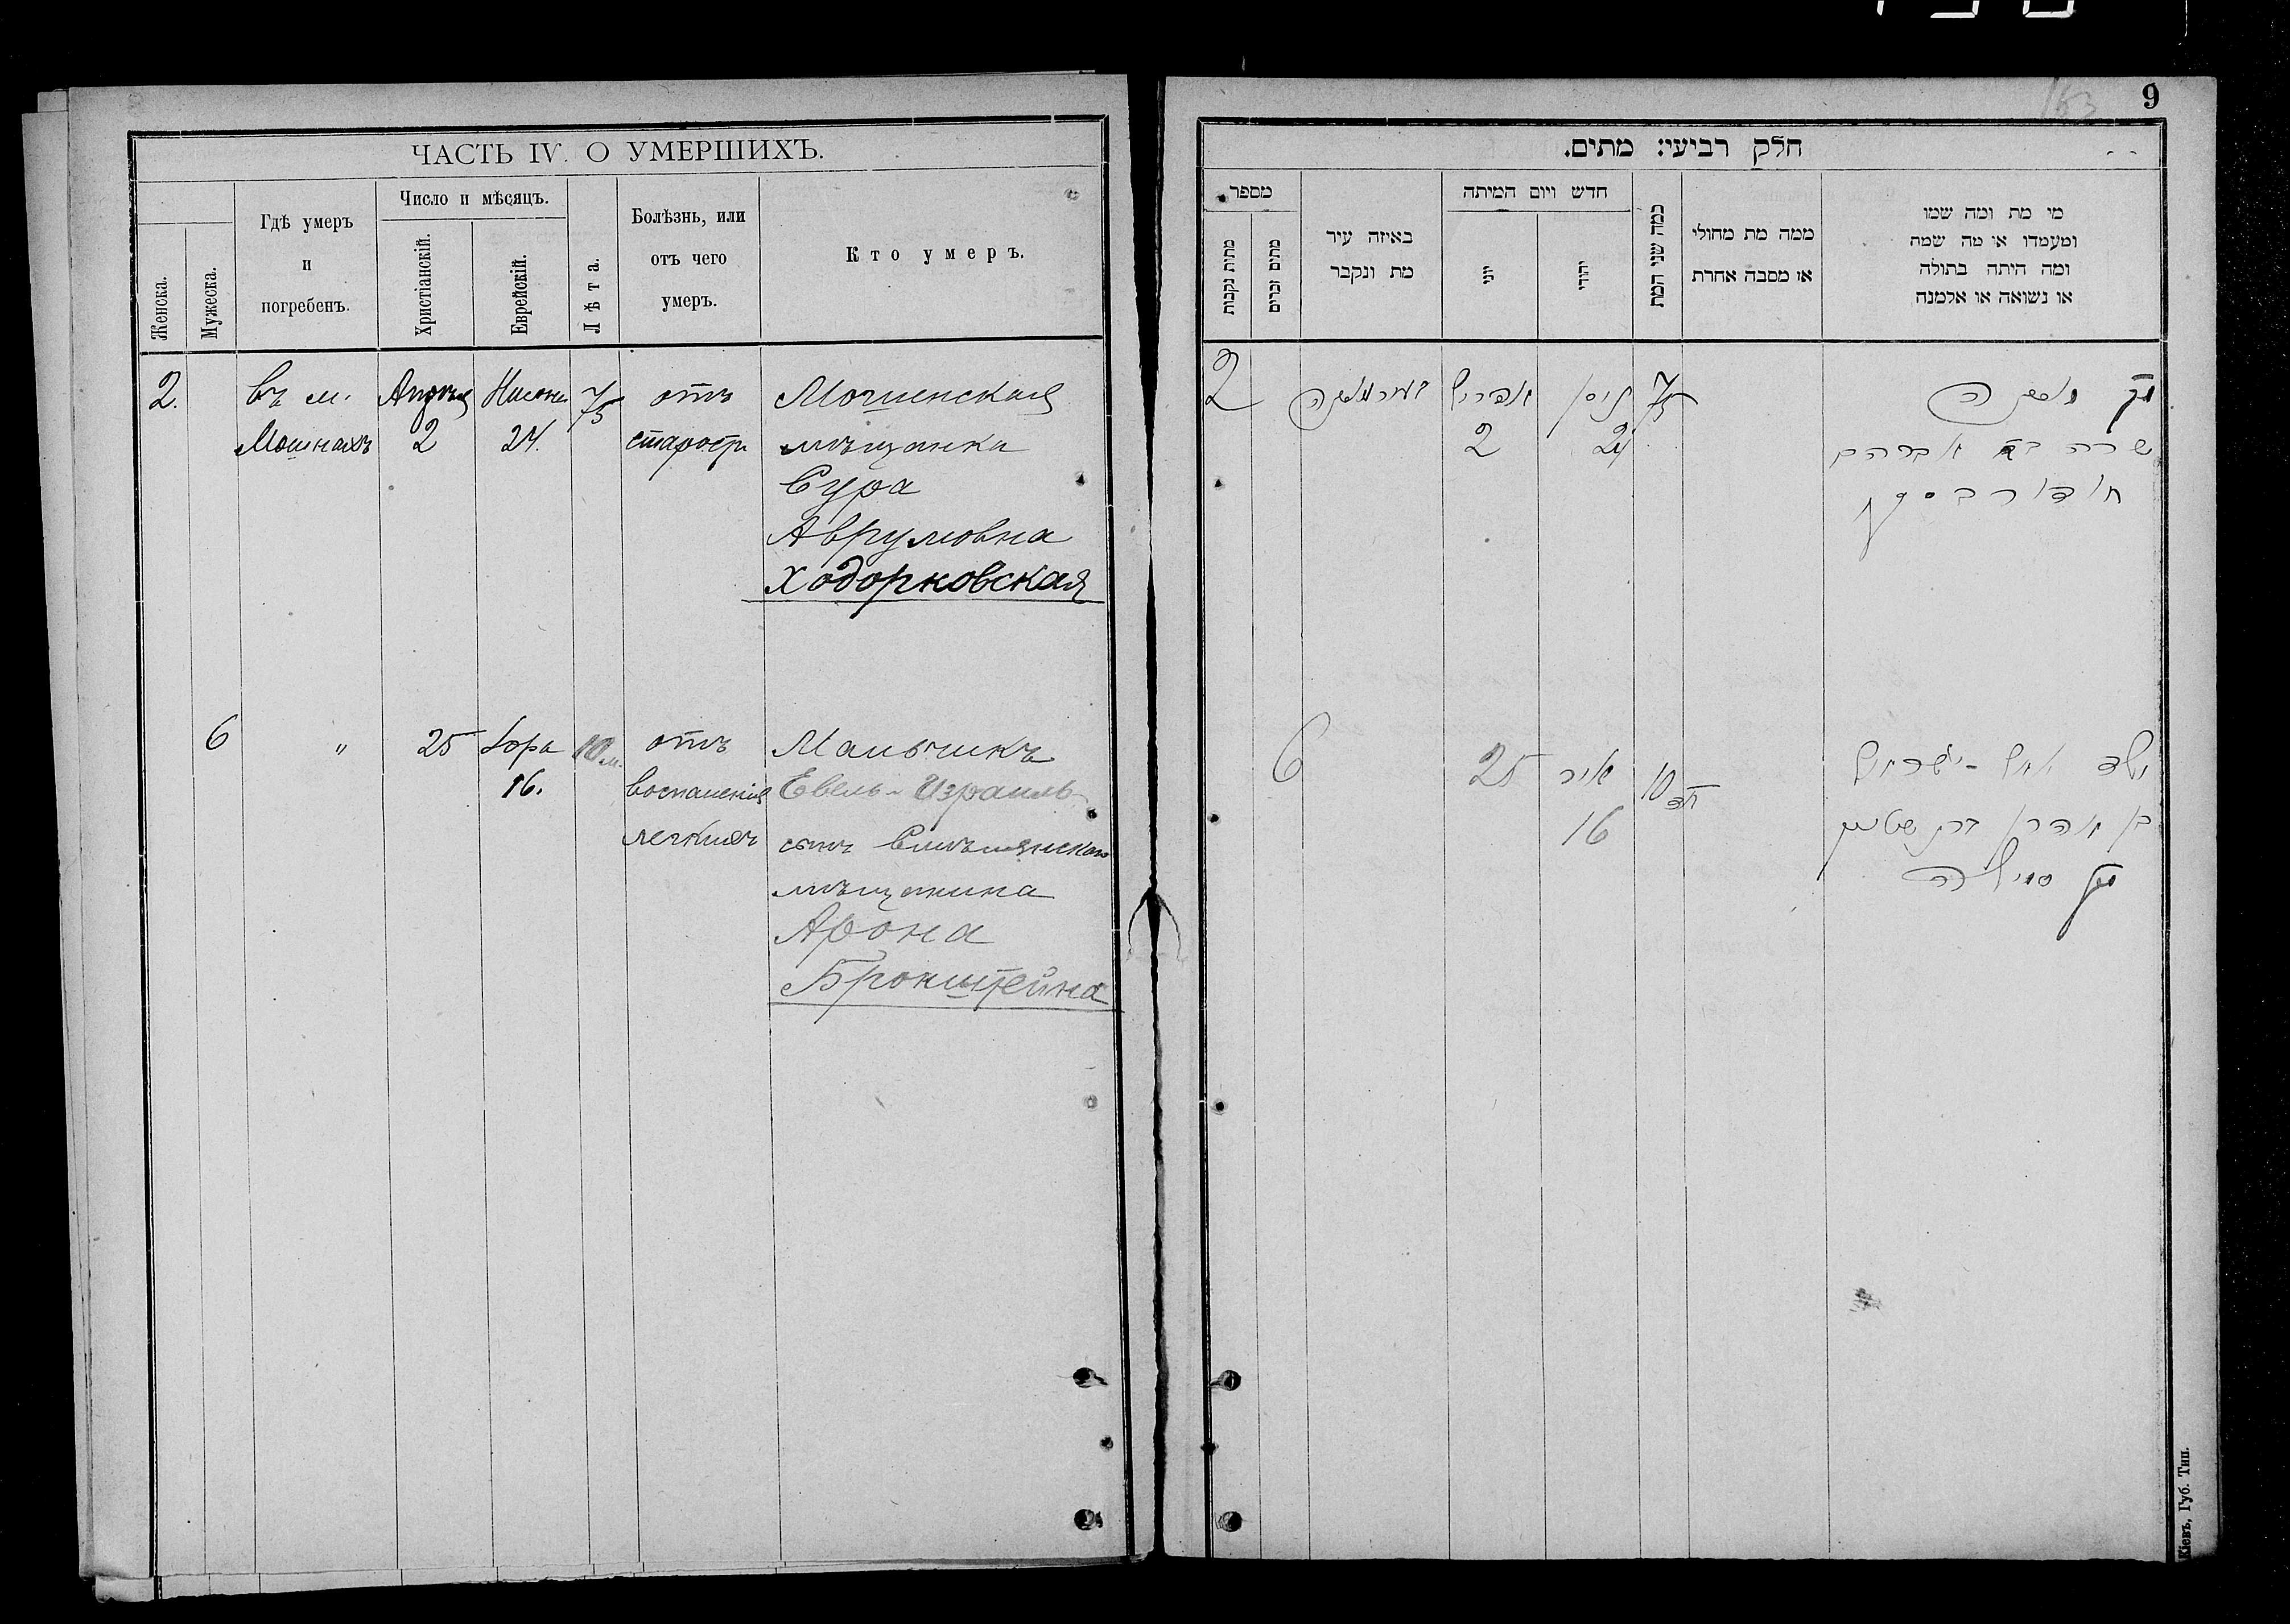 9
163
ЧАСТЬ IV. О УМЕРШИХЪ.
Женска.
Мужеска.
Гдѣ умеръ
и
погребенъ.
Число и мѣсяцъ.
Христіанскій.
Еврейскій.
Лѣта.
Болѣзнь, или
отъ чего
умеръ.
Кто умеръ.
2. въ м. Апрѣля Нисонъ 75 отъ Мошенская
Мошнахъ 2 24. старости мѣщанка
Сура
Аврумовна
Ходорковская
6 " 25 Іора 10 м. отъ Мальчикъ
16. воспаленія Евель-Израиль
легкихъ сынъ
мѣщанина
Арона
Бронштейна
חלק רביעי: מתים.
מספר
מתות נקבות
מתים זכרים
באיזה עיר
מת ונקבר
חדש ויום המיתה
יוני
יהודי
כמה שני המת
ממה מת מחולי
או מסבה אחרת
מי מת ומה שמו
ומעמדו או מה שמה
ומה היתה בתולה
או נשואה או אלמנה
2 אפריל ניסן 75
2 24 שרה בת אברהם
חודורקבסקי
6 25 אייר 10 חד
16
ילד -ישראל
בן אהרן ברנשטיין
Кіевъ, Губ. Тип.